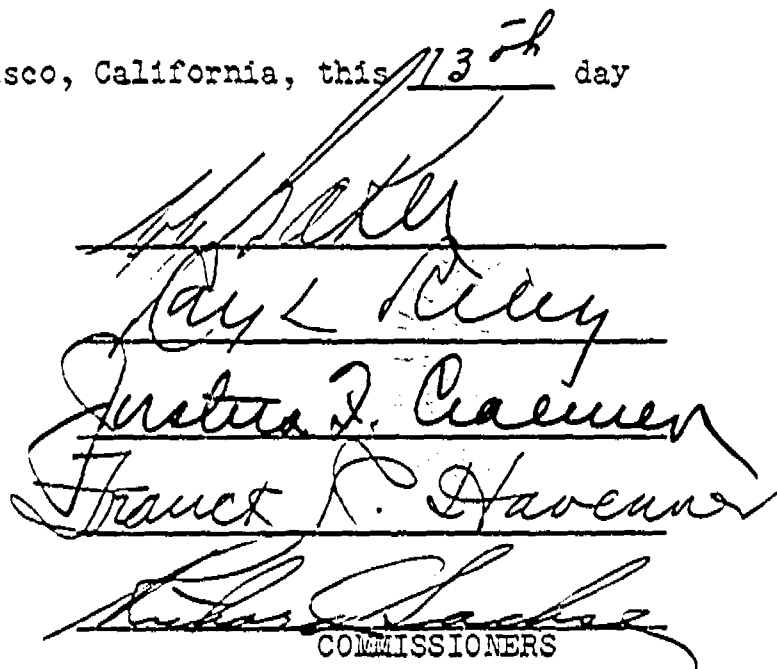 sco, California, this 13th day
Baker
Ray L Riley
Justus F. Craemer
Franck R. Havenner
Richard Sachse
COMMISSIONERS